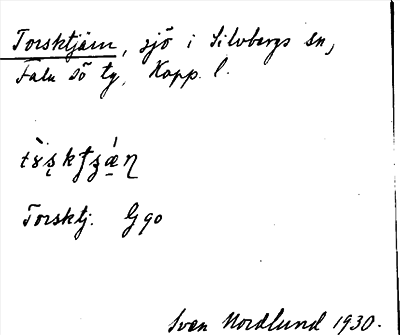 Torsktjärn, sjö i Silvbergs sn,
Falu sö tg, Kopp. l.
Torsktj. G90
Sven Nordlund 1930.